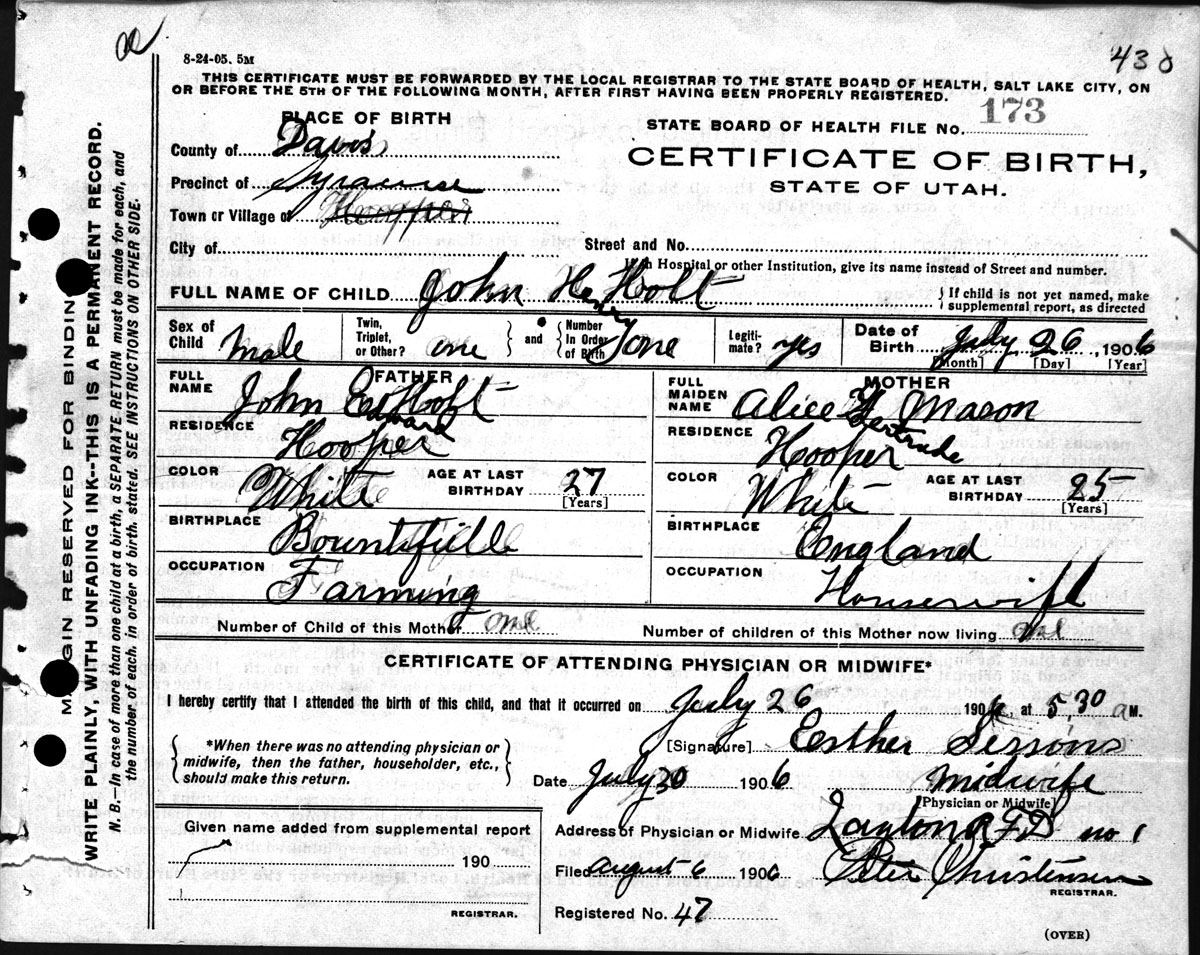 438
8-24-05. 5M
THIS CERTIFICATE MUST BE FORWARDED BY THE LOCAL REGISTRAR TO THE STATE BOARD OF HEALTH, SALT LAKE CITY, ON
OR BEFORE THE 5TH OF THE FOLLOWING MONTH, AFTER FIRST HAVING BEEN PROPERLY REGISTERED.
PLACE OF BIRTH
STATE BOARD OF HEALTH FILE No. 173
County of Davis
CERTIFICATE OF BIRTH,
Precinct of Syracuse
STATE OF UTAH.
Town or Village of Hooper
City of
Street and No.
If in Hospital or other Institution, give its name instead of Street and number.
FULL NAME OF CHILD John Henry Holt
If child is not yet named, make
supplemental report, as directed
Sex of Child Male
Twin, Triplet, or Other? one
and
Number In Order of Birth one
Legiti-mate? yes
Date of Birth July 26, 1906
[Month] [Day] [Year]
FATHER
FULL NAME John Edward Holt
RESIDENCE Hooper
COLOR White
AGE AT LAST BIRTHDAY 27
[Years]
BIRTHPLACE
OCCUPATION Farming
MOTHER
FULL MAIDEN NAME Alice Gertrude Mason
RESIDENCE Hooper
COLOR White
AGE AT LAST BIRTHDAY 25
[Years]
BIRTHPLACE England
OCCUPATION Housewife
Number of Child of this Mother one
Number of children of this Mother now living one
CERTIFICATE OF ATTENDING PHYSICIAN OR MIDWIFE*
I hereby certify that I attended the birth of this child, and that it occurred on July 26 1906, at 5,30 a M.
*When there was no attending physician or
midwife, then the father, householder, etc.,
should make this return.
[Signature] Esther Sessions
Date July 30 1906 Midwife
[Physician or Midwife]
Address of Physician or Midwife Layton R F D no 1
Filed August 6 1906 Peter Christensen
REGISTRAR.
Registered No. 47
Given name added from supplemental report
190
REGISTRAR.
(OVER)
MARGIN RESERVED FOR BINDING
WRITE PLAINLY, WITH UNFADING INK--THIS IS A PERMANENT RECORD.
N. B.—In case of more than one child at a birth, a SEPARATE RETURN must be made for each, and
the number of each, in order of birth, stated. SEE INSTRUCTIONS ON OTHER SIDE.